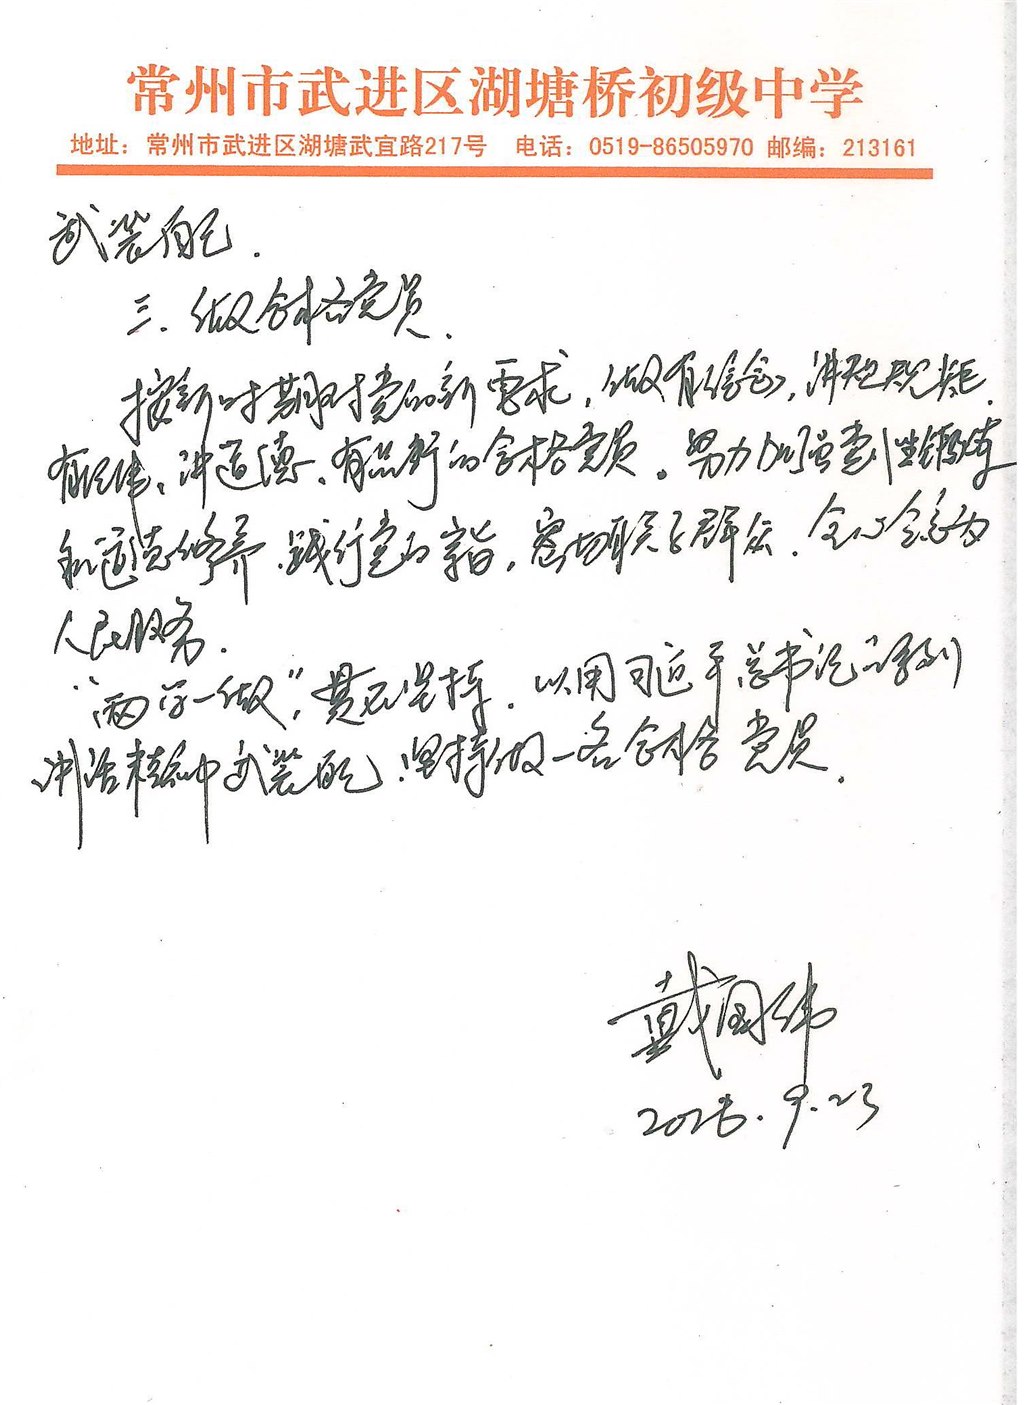 常州市武进区湖塘桥初级中学
地址：常州市武进区湖塘武宜路217号 电话：0519-86505970 邮编：213161
武装自己.
三、做合格党员.
按新时期对党的新要求，做有信念，讲规矩.
有纪律、讲道德、有品行的合格党员。努力加强党性锻炼
和道德修养.践行党的宗旨，密切联系群众.全心全意为
人民服务.
"两学一做"，贵在坚持.以用习近平总书记的系列
讲话精神武装自己.坚持做一名合格党员.
戴国伟
9.23